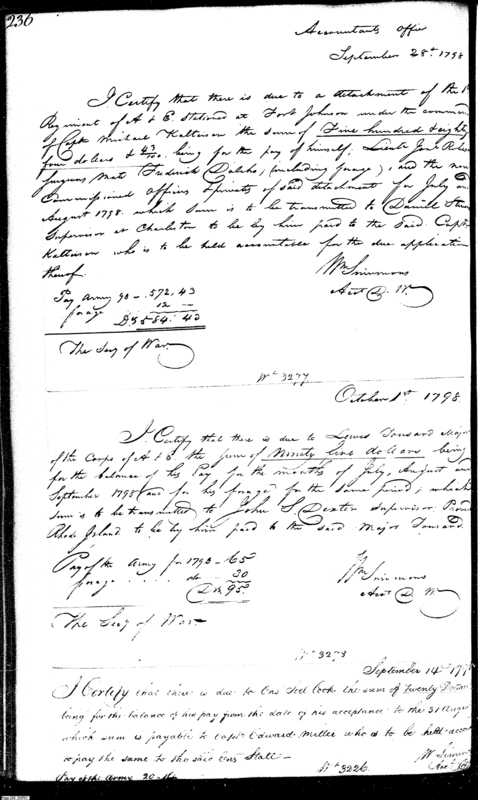 236
Accountants Office
September 28th 1798
I Certify that there is due to a detachment of the 1st
Regiment of A & E stationed at Fort Johnson under the command
of Capt Michael Kalteisen the sum of Five hundred & eighty
four dollars & 43/100 being for the pay of himself, Lieut
Surgeons Mate Frederick Dalcho, (including forage), and the non
Commissioned officers & privates of said detachment for July and
August 1798. which sum is to be transmitted to Daniel
Supervisor at Charleston to be by him paid to the said Capt
Kalteisen who is to be held accountable for the due application
thereof.
Wm Simmons
Acct D. W.
Pay Army 98 - 572.43
forage 12 -
Ds 584.43
The Secy of War
No 3277
October 1st 1798
I Certify that there is due to Lewis Tousard Major
of the Corps of A & E the sum of Ninety five dollars being
for the balance of his Pay for the months of July, August and
September 1798 and for his forage for the same period; which
sum is to be transmitted to John S. Dexter Supervisor
Rhode Island to be by him paid to the said Major Tousard.
Pay of the Army for 1798 - 65
forage . . . . do - 30
Ds 95
Wm Simmons
Acct D. W.
The Secy of War
No 3278
September 14th 179
I Certify that there is due to Ens Joel Cook the sum of Twenty Dollars
being for the balance of his pay from the date of his acceptance to the 31 August
which sum is payable to capt. Edward Miller who is to be held
to pay the same to the said Ens
W Simmons
Pay of the Army 20
No 3226